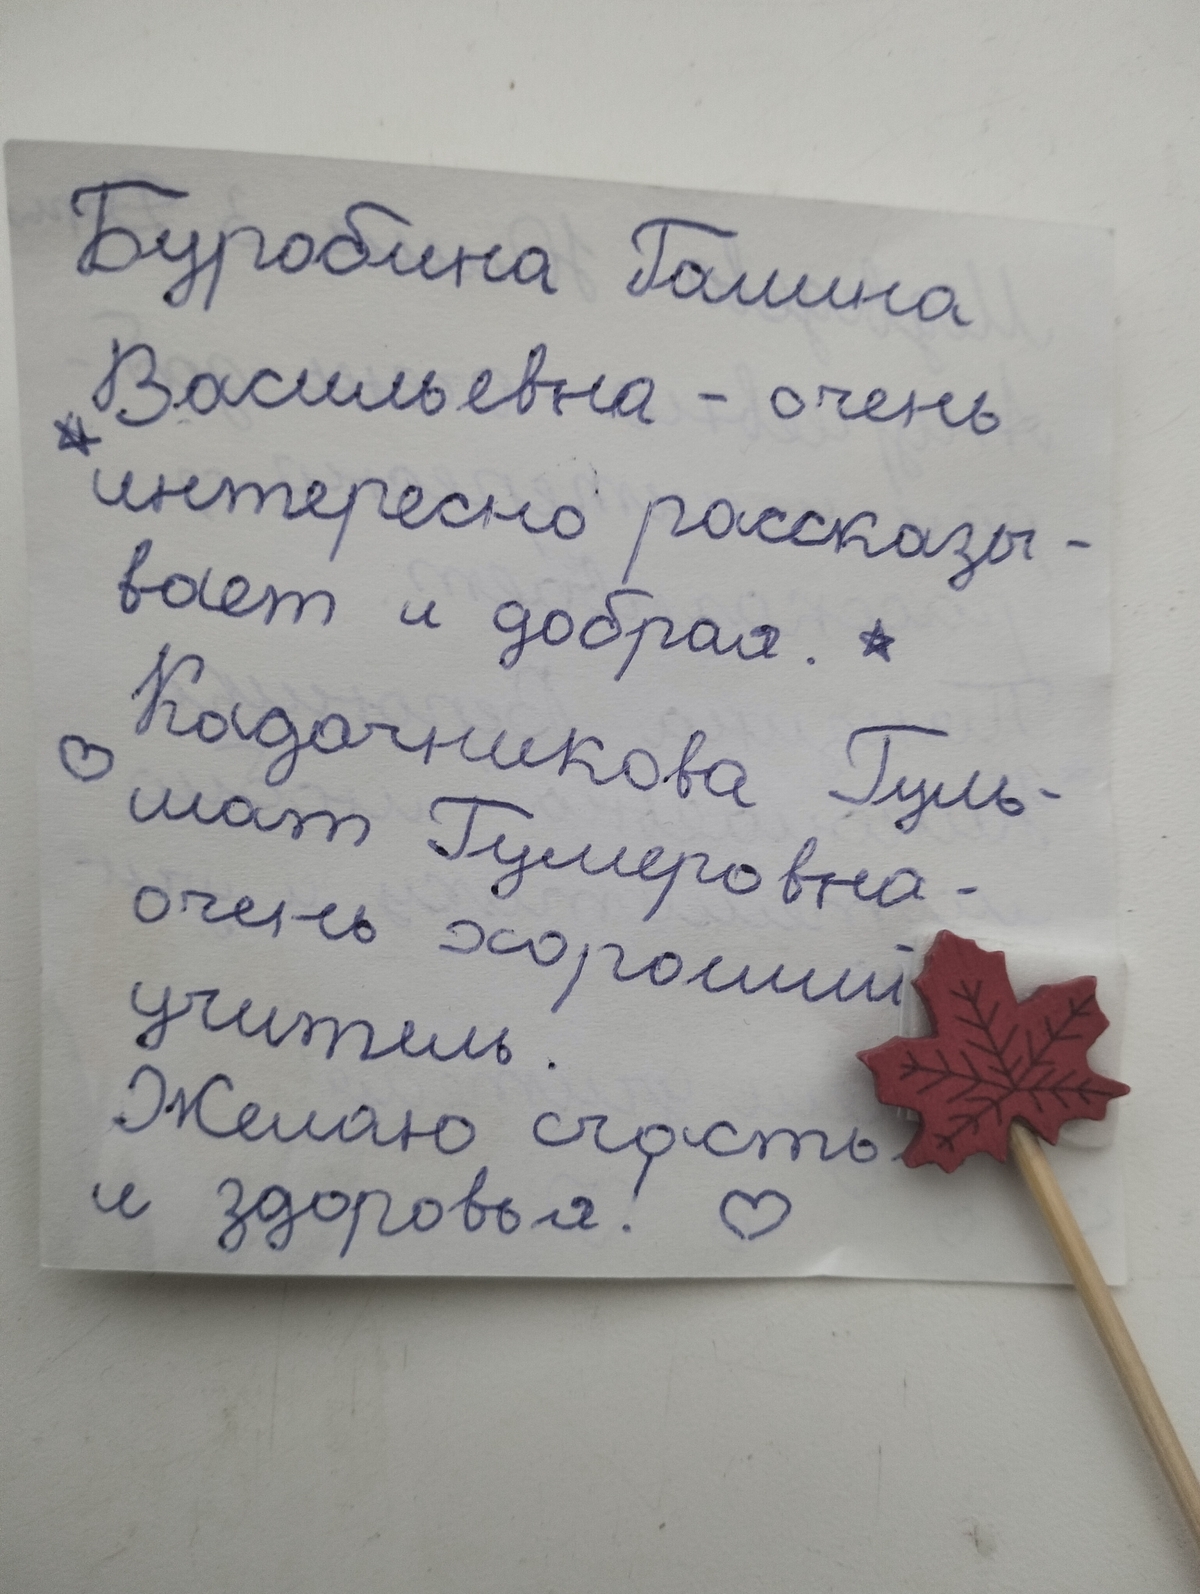 Буробина Галина
Васильевна - очень
интересно рассказы-
вает и добрая.
Кадочникова Гуль-
шат Гумеровна -
очень хороший
учитель.
Желаю счасть
и здоровья!